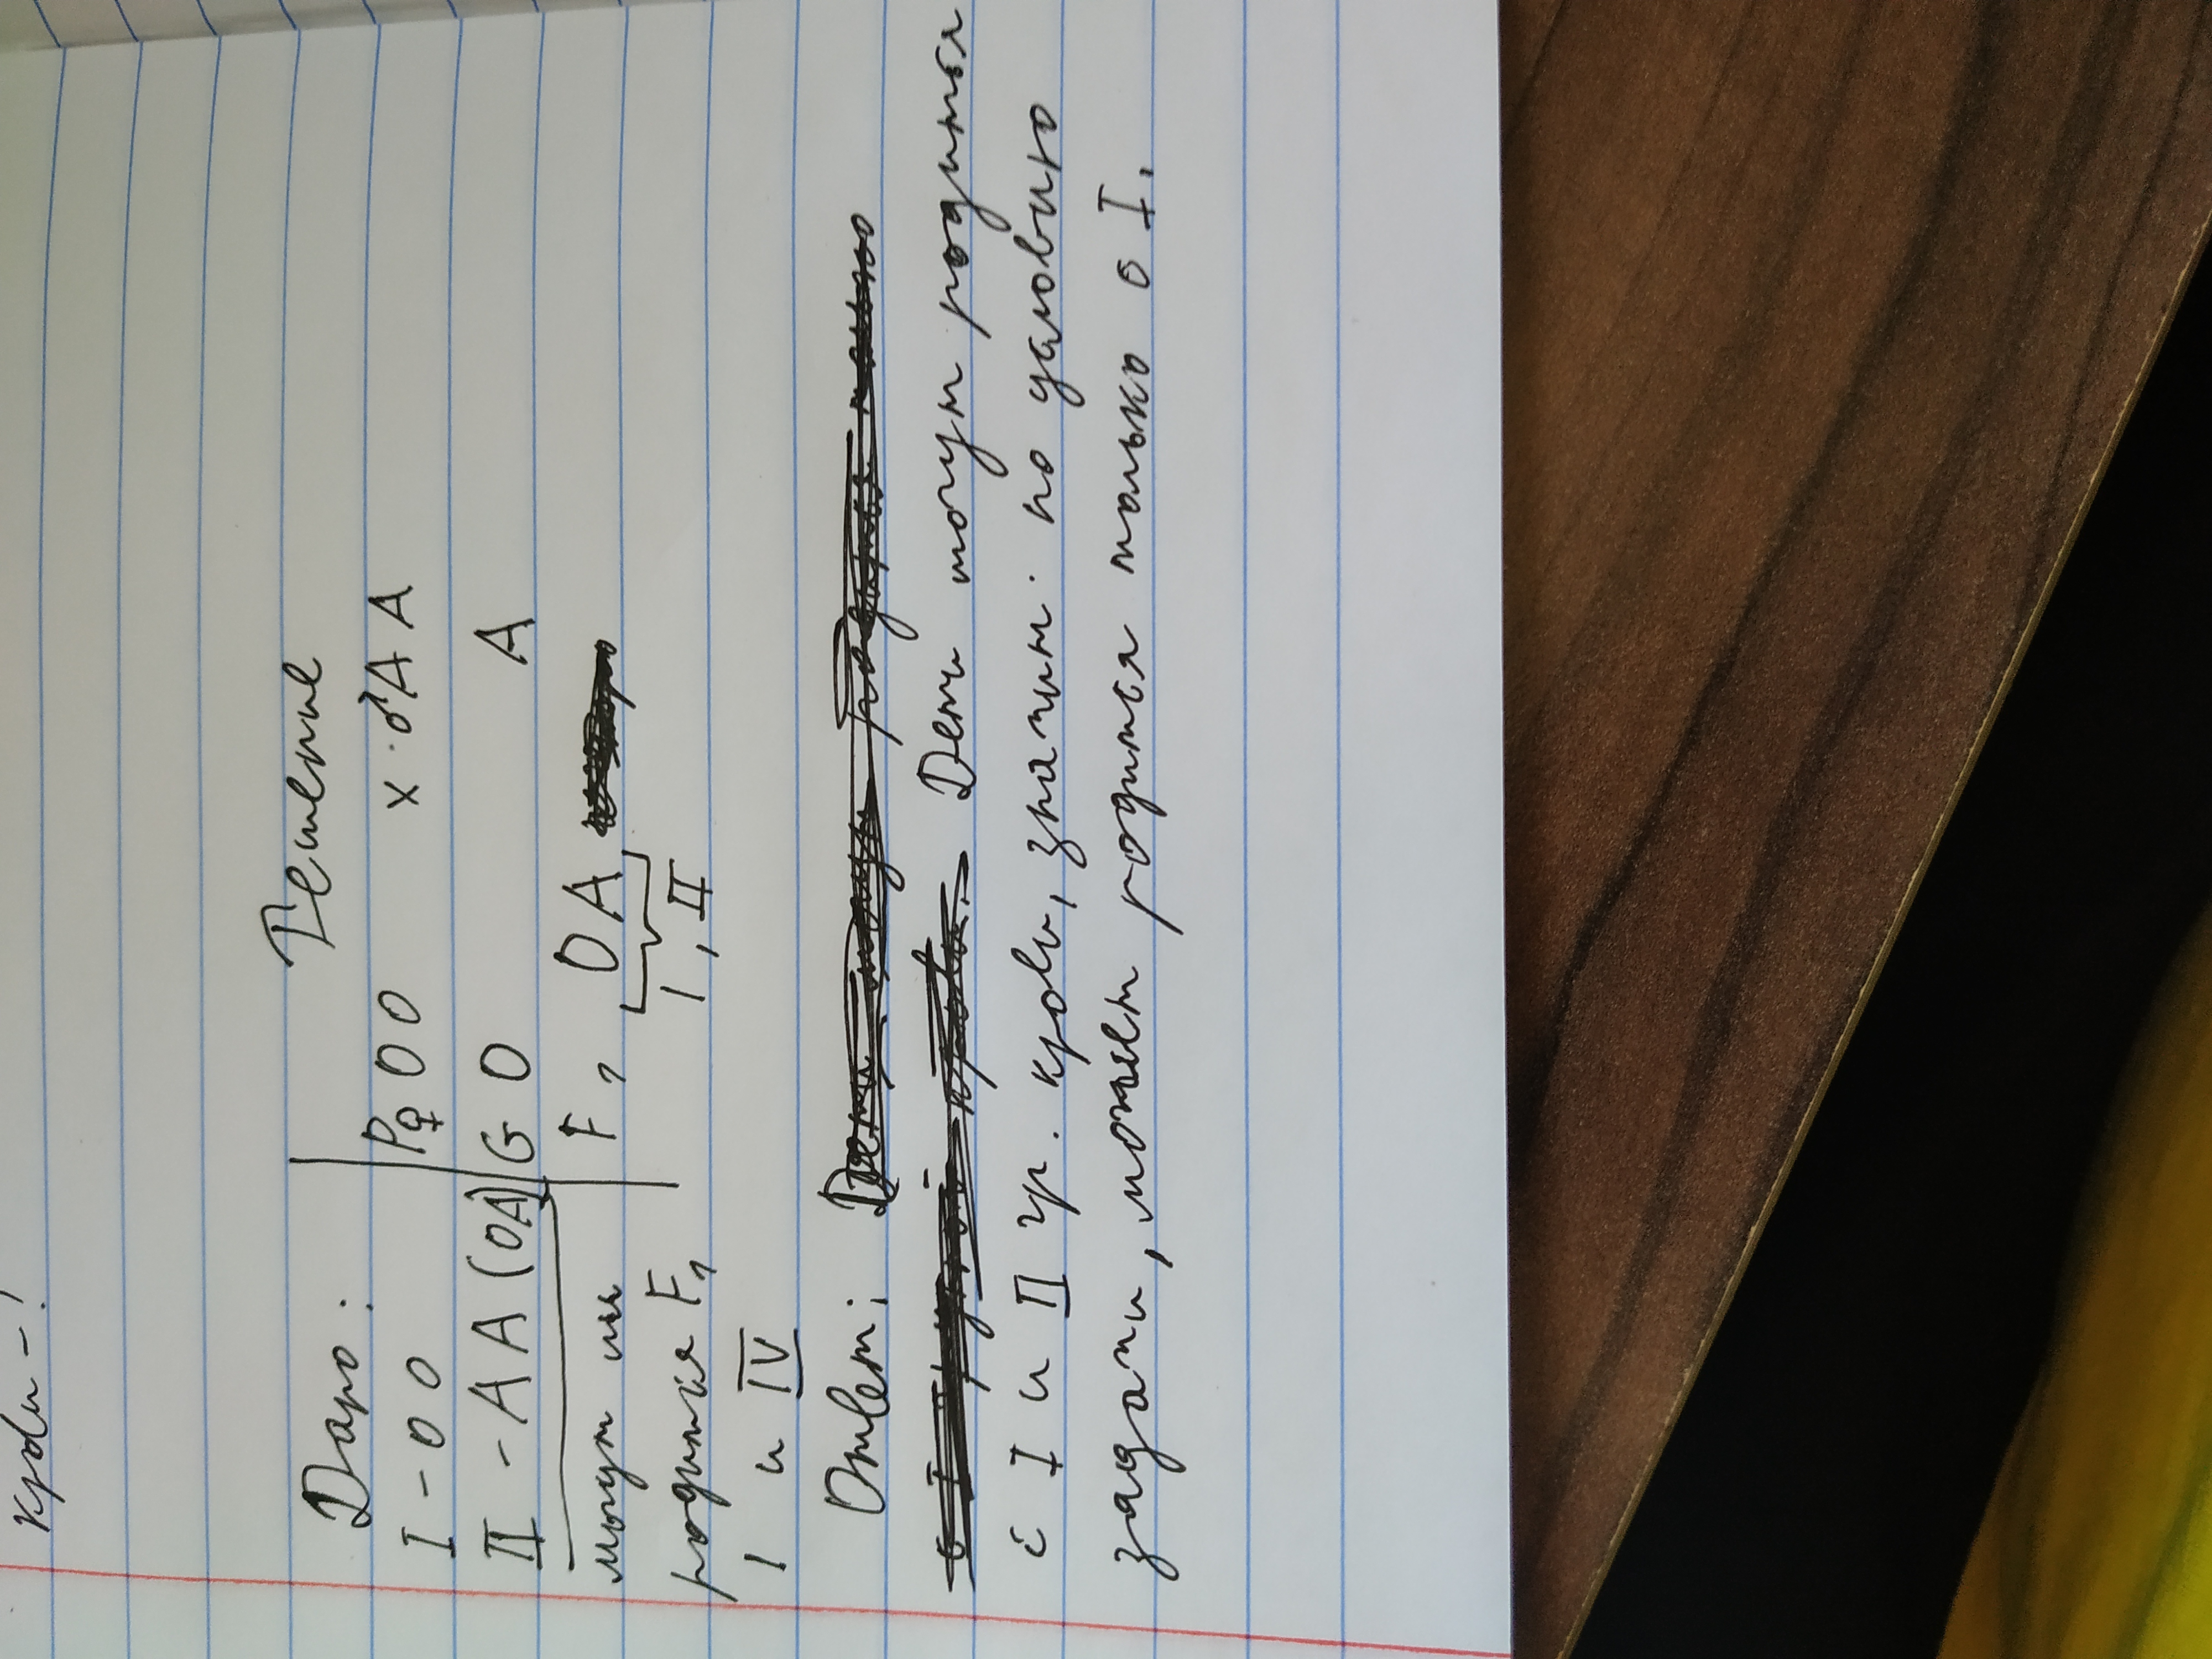 крови - ?
Дано:
I - OO
II - AA (OA)
могут ли
родится F1
I и IV
Решение
P ♀ OO x ♂ AA
G O A
F1 OA,
I, II
Ответ:
Дети могут родиться
с I и II гр. крови, значит. по условию
задачи, может родится только с I.